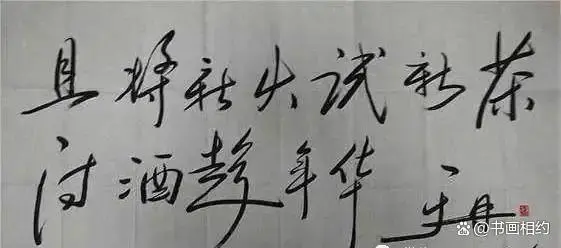 且将新火试新茶
诗酒趁年华 于丹
@书画相约